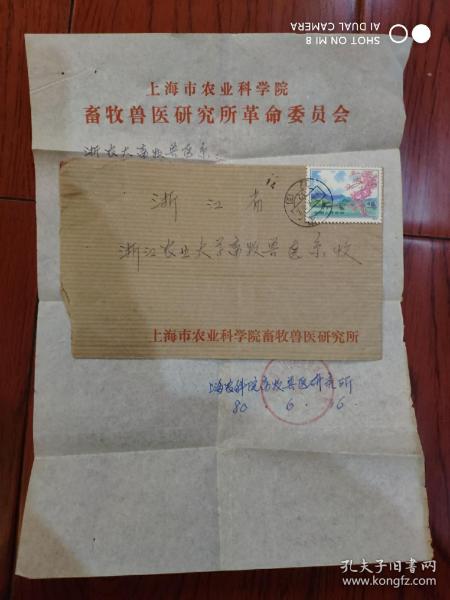 SHOT ON MI 8
AI DUAL CAMERA
上海市农业科学院
畜牧兽医研究所革命委员会
浙农大畜牧兽医系:
浙江省
浙江农业大学畜牧兽医系收
上海市农业科学院畜牧兽医研究所
上海农科院畜牧兽医研究所
80.6.16.
孔夫子旧书网
www.kongfz.com